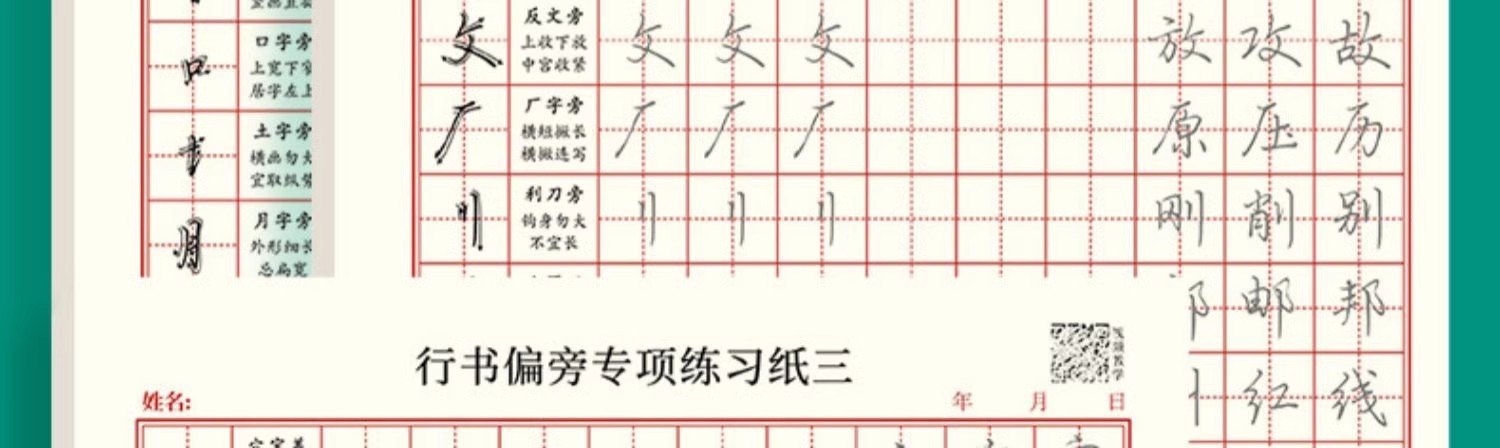 口字旁
上宽下窄
居字左上
土字旁
横画勿大
宜取纵势
月字旁
外形细长
总局宽
攵
反文旁
上收下放
中宫收紧
攵 攵 攵
放 攻 故
厂
厂字旁
横短撇长
横撇连写
厂 厂 厂
原 压 历
刂
利刀旁
钩身勿大
不宜长
刂 刂 刂
刚 削 别
邮 邦
红 线
行书偏旁专项练习纸三
姓名: 年 月 日